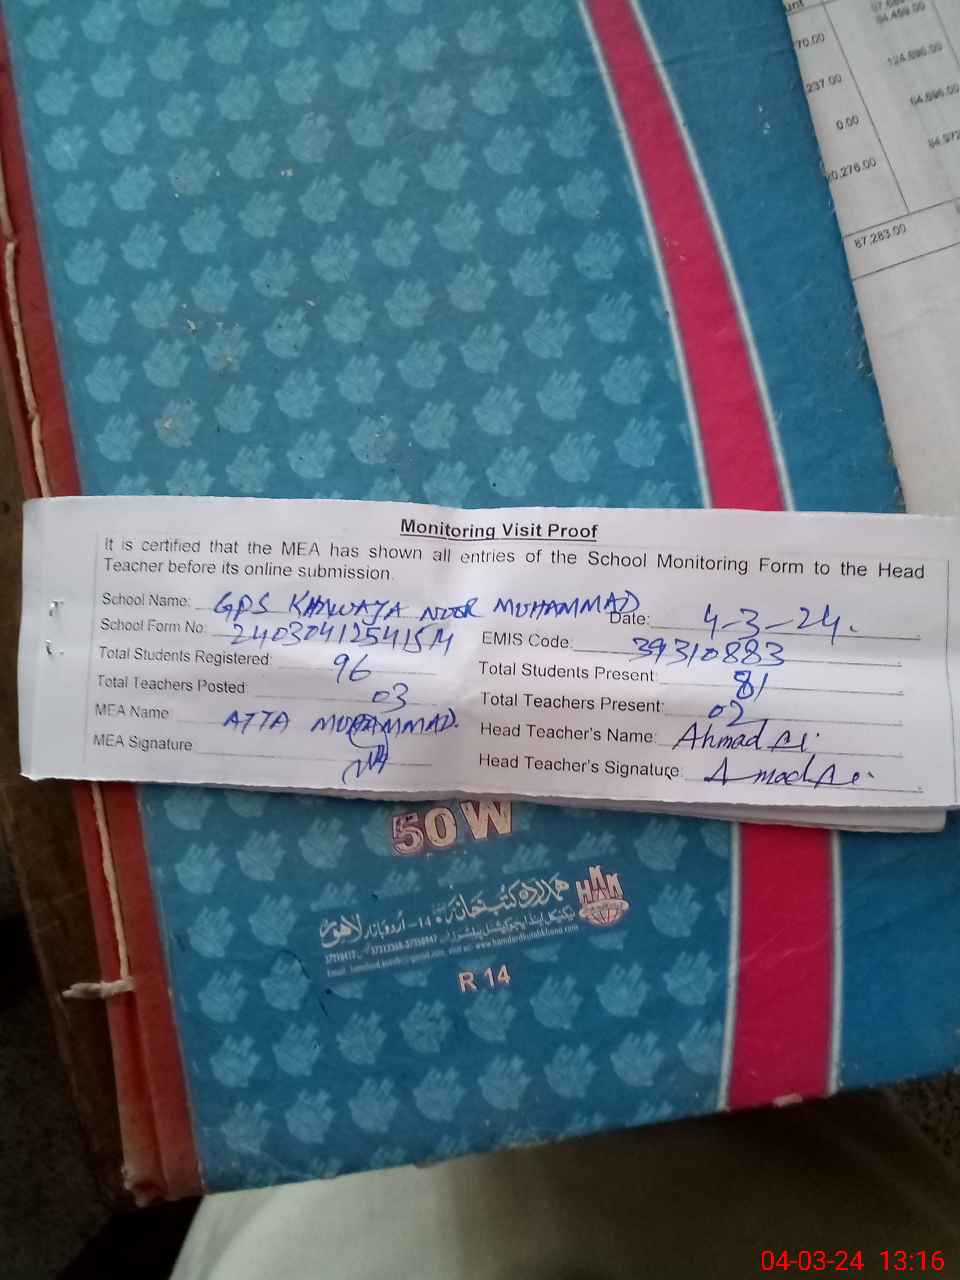 70.00
84,459.00
237.00
124,696.00
0.00
64,696.00
20,276.00
87,283.00
Monitoring Visit Proof
It is certified that the MEA has shown all entries of the School Monitoring Form to the Head
Teacher before its online submission.
School Name: GPS KHAWAJA NOOR MUHAMMAD Date: 4-3-24.
School Form No: 24030412541514 EMIS Code: 39310883
Total Students Registered: 96 Total Students Present: 81
Total Teachers Posted: 03 Total Teachers Present: 02
MEA Name: ATTA MUHAMMAD. Head Teacher's Name: Ahmad Ali
MEA Signature: Head Teacher's Signature:
50W
ہمدرد کتب خانہ 14-اُردو بازار لاہور
HKK
R 14
04-03-24 13:16